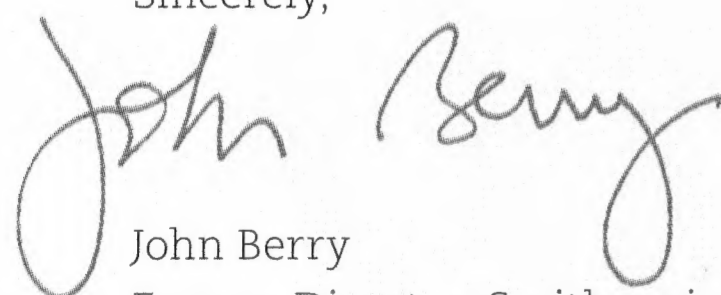 Sincerely,
John Berry
John Berry